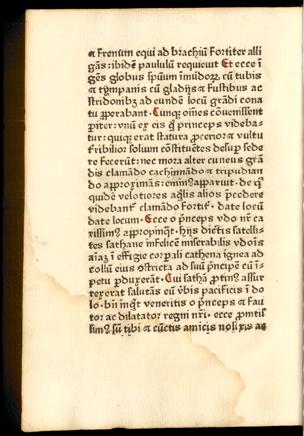 ⁊ Frenum equi ad brachiũ Fortiter alli
gãs: ibidẽ paululũ requieuit Et ecce ĩ
gẽs globus spũum ĩmũdoꝝ cũ tubis
⁊ tỹmpanis cũ gladijs ⁊ fustibus ac
stridonibꝫ ad eundẽ locũ grãdi cona
tu ꝓperabant · Cunqꝫ oĩnes cõuenissent
ꝑiter: vnũ ex eis qͥ princeps videba-
tur: quiqꝫ erat statura ꝓcerior ⁊ vultu
solium cõstituẽtes desup sede
re fecerũt: nec mora alter cuneus grã
dis clamãdo cachinnãdo ⁊ tripudian
do approximãs: eminꝰ apparuit · de qͥ
quidẽ velotiores aqͥlis alios p̃cedere
videbant᷑ clamãdo Fortit᷑ · date locũ
date locum · Ecce o p̃nceps vdo nr̃ ca
rissimꝰ appropinqͭ · hijs dictis satelli-
tes sathane infelicẽ miserabilis vdoĩs
aĩaꝫ ĩ effigie corꝑali cathena ignea ad
collũ eius ostricta ad suũ p̃ncipẽ cũ ĩ-
petu ꝑduxerãt · Cui sathã ꝓtinꝰ assur
rexerat salutãs eũ v̾bis pacificis ĩ do
lo · bñ inqͭ veneritis o p̃nceps ⁊ fau
tor ac dilatator regni nr̃i · ecce ꝓmtis
simꝰ sũ tibi ⁊ cũctis amicis nosĩxis ac